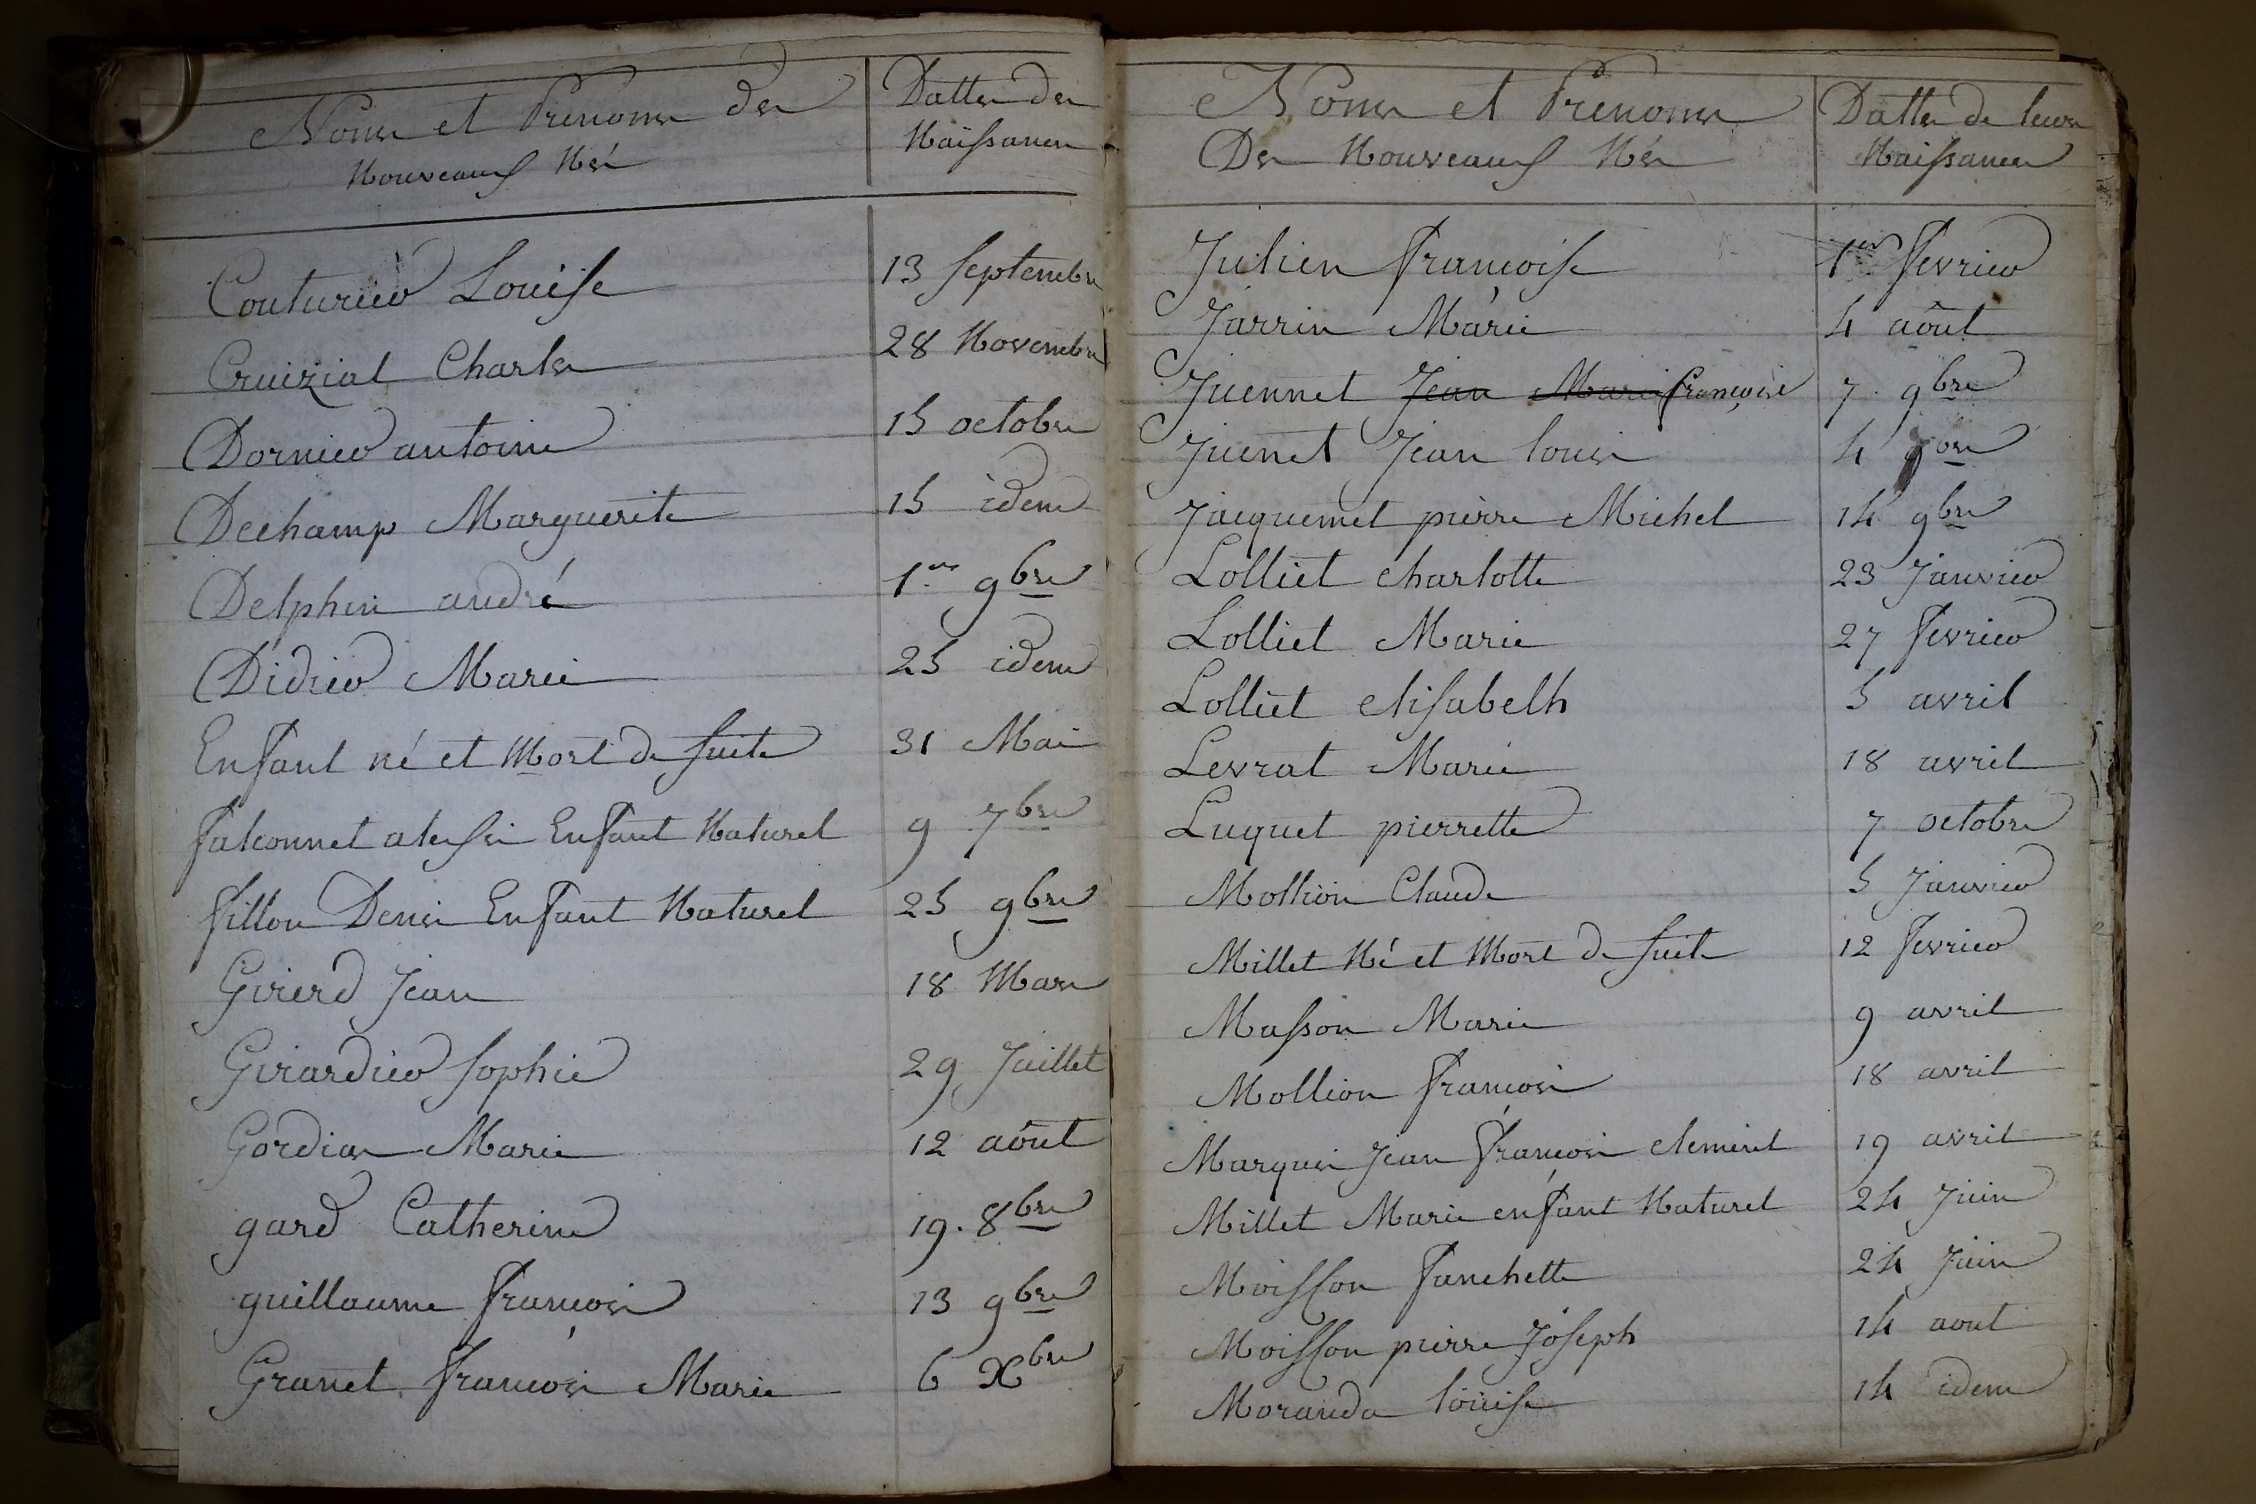 Noms et Prenoms des
Nouveaux Nés
Dattes des
Naissances
Couturier Louise 13 Septembre
Cruizial Charles 28 Novembre
Dornier antoine 15 octobre
Dechamp Marguerite 15 idem
Delphin andré 1er 9bre
Didier Marie 25 idem
Enfant né et Mort de suite 31 Mai
falconnet alexis Enfant Naturel 9 7bre
fillon Denis Enfant Naturel 25 9bre
Girerd Jean 18 Mars
Girardier Sophie 29 Juillet
Gordian Marie 12 août
gard Catherine 19. 8bre
guillaume françois 13 9bre
Granet françois Marie 6 Xbre
Noms et Prenoms
Des Nouveaux Nés
Dattes de leurs
Naissances
Julien françoise 1er fevrier
Jarrin Marie 4 août
Juennet Jean Marie françoise 7 9bre
Juenet Jean louis 4
Jacquemet pierre Michel 14 9bre
Lolliet charlotte 23 Janvier
Lolliet Marie 27 fevrier
Lolliet elisabeth 5 avril
Levrat Marie 18 avril
Luquet pierrette 7 octobre
Mollion Claude 5 Janvier
Millet Né et Mort de suite 12 fevrier
Masson Marie 9 avril
Mollion françois 18 avril
Marquis Jean françois clement 19 avril
Millet Marie enfant Naturel 24 Juin
Moisson fanchette 24 Juin
Moisson pierre Joseph 14 aout
Moranda louise 14 idem